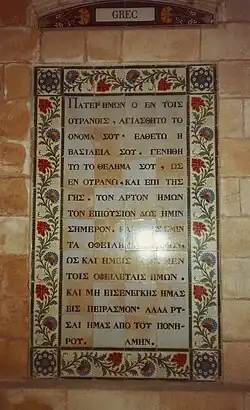 GREC
ΠΑΤΕΡ ΗΜΩΝ Ο ΕΝ ΤΟΙΣ
ΟΥΡΑΝΟΙΣ, ΑΓΙΑΣΘΗΤΩ ΤΟ
ΟΝΟΜΑ ΣΟΥ· ΕΛΘΕΤΩ Η
ΒΑΣΙΛΕΙΑ ΣΟΥ. ΓΕΝΗΘΗ
ΤΩ ΤΟ ΘΕΛΗΜΑ ΣΟΥ, ΩΣ
ΕΝ ΟΥΡΑΝΩ, ΚΑΙ ΕΠΙ ΤΗΣ
ΓΗΣ. ΤΟΝ ΑΡΤΟΝ ΗΜΩΝ
ΤΟΝ ΕΠΙΟΥΣΙΟΝ ΔΟΣ ΗΜΙΝ
ΣΗΜΕΡΟΝ.
ΤΑ
ΩΣ ΚΑΙ ΗΜΕΙΣ ΜΕΝ
ΤΟΙΣ ΟΦΕΙΛΕΤΑΙΣ ΗΜΩΝ.
ΚΑΙ ΜΗ ΕΙΣΕΝΕΓΚΗΣ ΗΜΑΣ
ΕΙΣ ΠΕΙΡΑΣΜΟΝ· ΑΛΛΑ ΡΥ-
ΣΑΙ ΗΜΑΣ ΑΠΟ ΤΟΥ ΠΟΝΗ-
ΡΟΥ. ΑΜΗΝ.